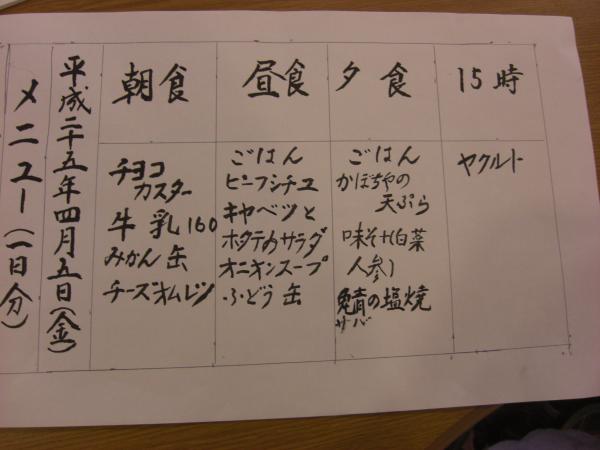 メニュー(一日分)
平成二十五年四月五日(金)
朝食
チョコ
カスター
牛乳160
みかん缶
チーズオムレツ
昼食
ごはん
ビーフシチュ
キャベツと
ホタテのサラダ
オニオンスープ
ぶどう缶
夕食
ごはん
かぼちゃの
天ぷら
味そ汁(白菜
人参)
鯖の塩焼
サバ
15時
ヤクルト